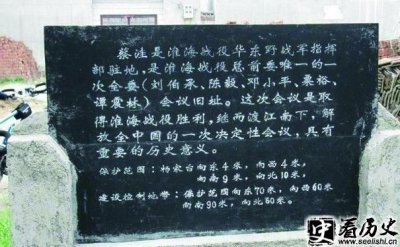 蔡洼是淮海战役华东野战军指挥
部驻地,是淮海战役总前委唯一的一
次全委(刘伯承、陈毅、邓小平、粟裕、
谭震林)会议旧址。这次会议是取
得淮海战役胜利,继而渡江南下,解
放全中国的一次决定性会议,具有
重要的历史意义。
保护范围:杨家台向东4米,向西4米,
向南9米,向北10米。
建设控制地带:保护范围向东70米,向西60米
向南90米,向北50米。
看历史
www.seelishi.cn